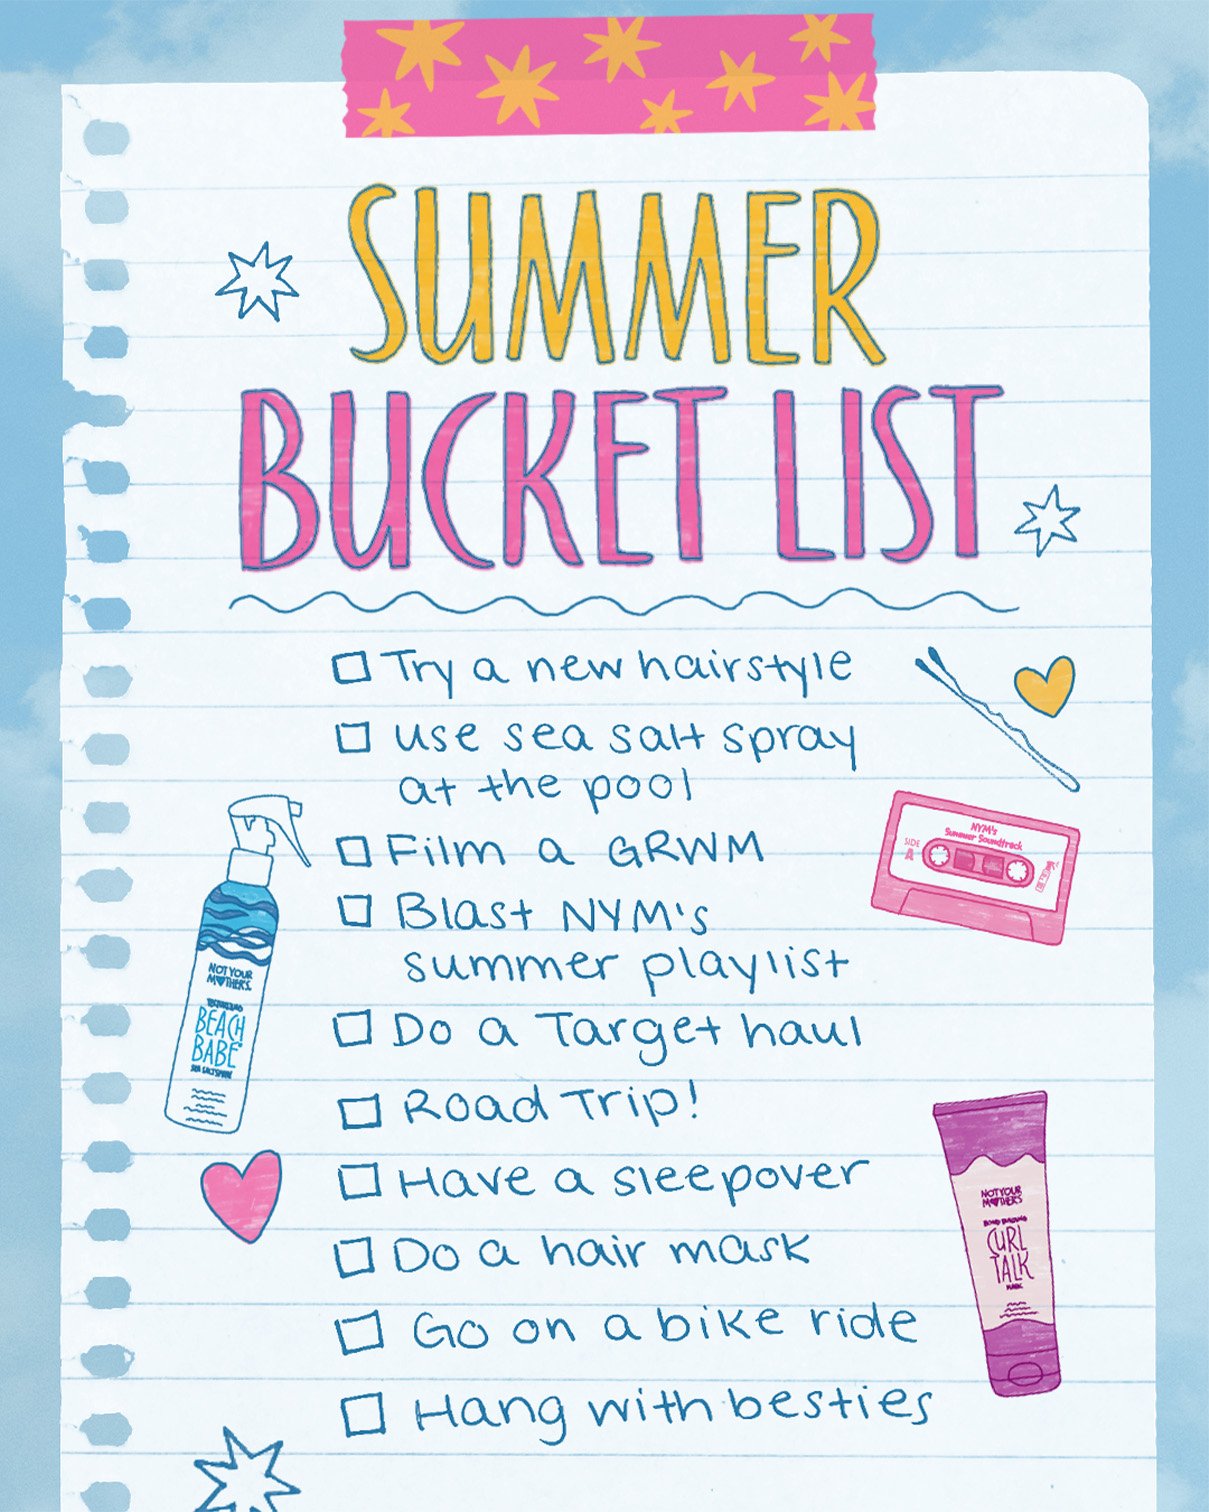 SUMMER
BUCKET LIST
Try a new hairstyle
use sea salt spray
at the pool
Film a GRWM
Blast NYM's
summer playlist
Do a Target haul
Road Trip!
Have a sleepover
Do a hair mask
Go on a bike ride
Hang with besties
NYM's
Summer Soundtrack
SIDE
A
NOT YOUR
MOTHER'S
BEACH
BABE
SEA SALT SPRAY
NOT YOUR
MOTHER'S
BOND BUILDING
CURL
TALK
MASK